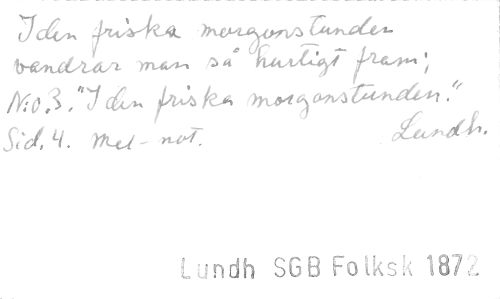 I den friska morgonstunden
vandrar man så hurtigt fram;
N:o.3. "I den friska morgonstunden."
Sid. 4. Mel-not. Lundh.
Lundh SGB Folksk 1872